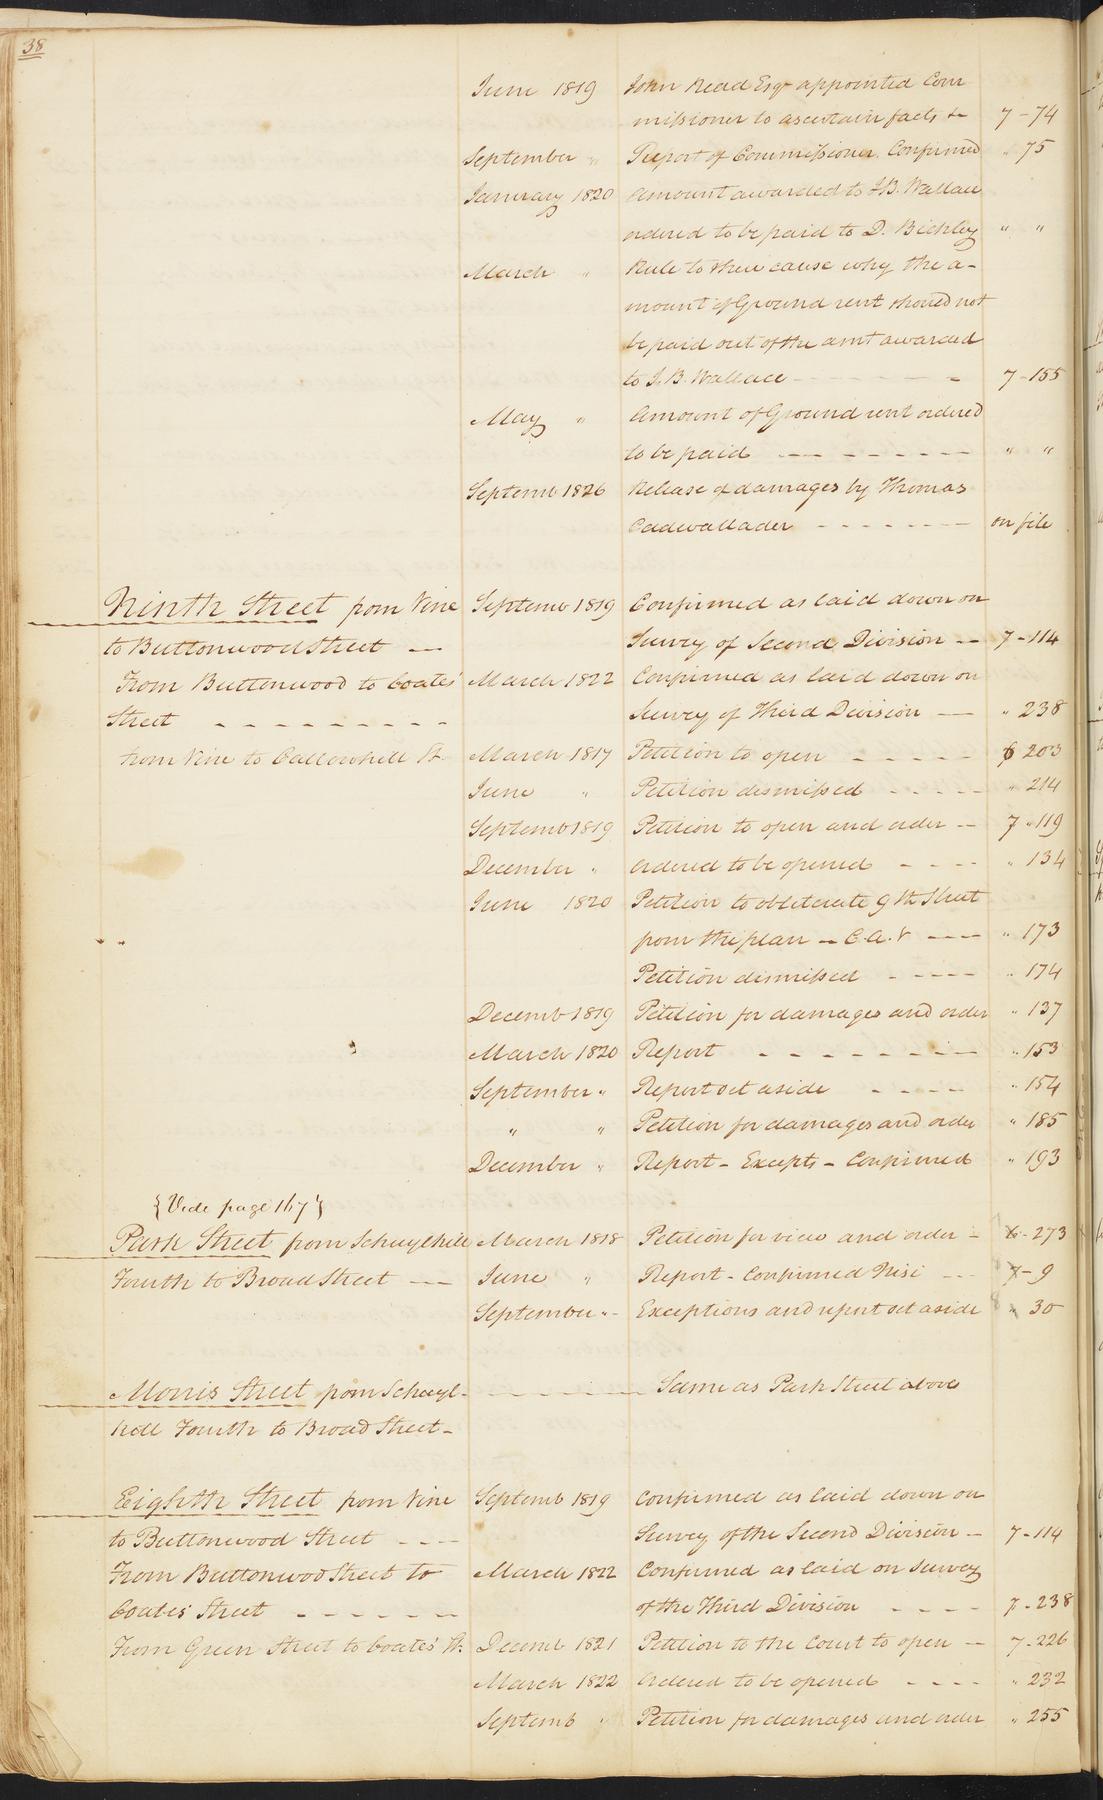 38
June 1819 John Read Esqr appointed Com
missioner to ascertain facts &c 7-74
September " Report of Commissioner Confirmed " 75
January 1820 Amount awarded to J.B. Wallace
ordered to be paid to D. Bickley " "
March " Rule to shew cause why the a-
mount of Ground rent should not
be paid out of the amt awarded
to J. B. Wallace - - - 7-155
May " Amount of Ground rent ordered
to be paid - - - - - - - - " "
Septemb 1826 Release of damages by Thomas
Cadwallader - - - - - - - on file
Ninth Street from Vine Septemb 1819 Confirmed as laid down on
to Buttonwood Street — Survey of Second Division — 7-114
From Buttonwood to Coates' March 1822 Confirmed as laid down on
Street - - - - - - - - - Survey of Third Division — " 238
From Vine to Callowhill St. March 1817 Petition to open - - - - - 6 203
June " Petition dismissed - - - - - " 214
Septemb 1819 Petition to open and order — 7 " 119
December " Ordered to be opened - - - - " 134
June 1820 Petition to obliterate 9th Street
from the plan — C.A.V - - - " 173
Petition dismissed - - - - - " 174
Decemb 1819 Petition for damages and order " 137
March 1820 Report - - - - - - - - " 153
September " Report set aside - - - - " 154
" " Petition for damages and order " 185
December " Report - Excepts - Confirmed " 193
{Vide page 167}
Park Street from Schuylkill March 1818 Petition for view and order - 6-273
Fourth to Broad Street — June " Report - Confirmed Nisi - - - 7-9
September " - Exceptions and report set aside " 30
Morris Street from Schuyl- - - - - - Same as Park Street above
kill Fourth to Broad Street -
Eighth Street from Vine Septemb 1819 Confirmed as laid down on
to Buttonwood Street - - - Survey of the Second Division - 7-114
From Buttonwoo Street to March 1822 Confirmed as laid on Survey
Coates' Street - - - - - - of the Third Division - - - - 7-238
From Green Street to Coates' St. Decemb 1821 Petition to the Court to open - - 7-226
March 1822 Ordered to be opened - - - - " 232
Septemb " Petition for damages and order " 255